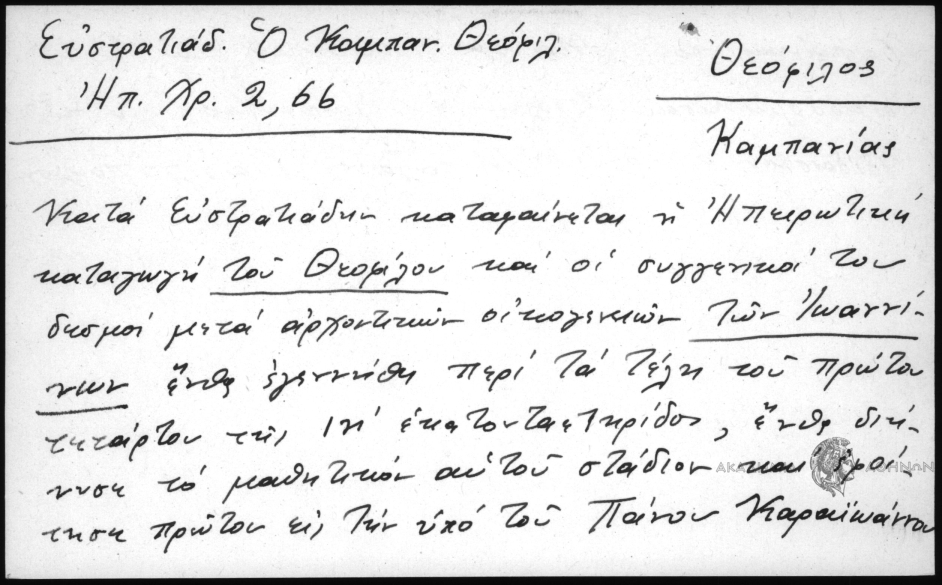 Εὐστρατιάδ. Ὁ Καμπαν. Θεόφιλ.
Ἠπ. Χρ. 2, 66
Θεόφιλος
Καμπανίας
Κατά Εὐστρατιάδην καταφαίνεται ἡ Ἠπειρωτική
καταγωγή τοῦ Θεοφίλου καί οἱ συγγενικοί του
δεσμοί μετά ἀρχοντικῶν οἰκογενειῶν τῶν Ἰωαννί-
νων ἔνθα ἐγεννήθη περί τά τέλη τοῦ πρώτου
τετάρτου τῆς ΙΗ΄ ἑκατονταετηρίδος, ἔνθα διή-
νυσε τό μαθητικόν αὐτοῦ στάδιον καί φοί-
τησε πρῶτον εἰς τήν ὑπό τοῦ Πάνου Καραϊωάννου
ΑΚΑΔΗΜΙΑ ΑΘΗΝΩΝ